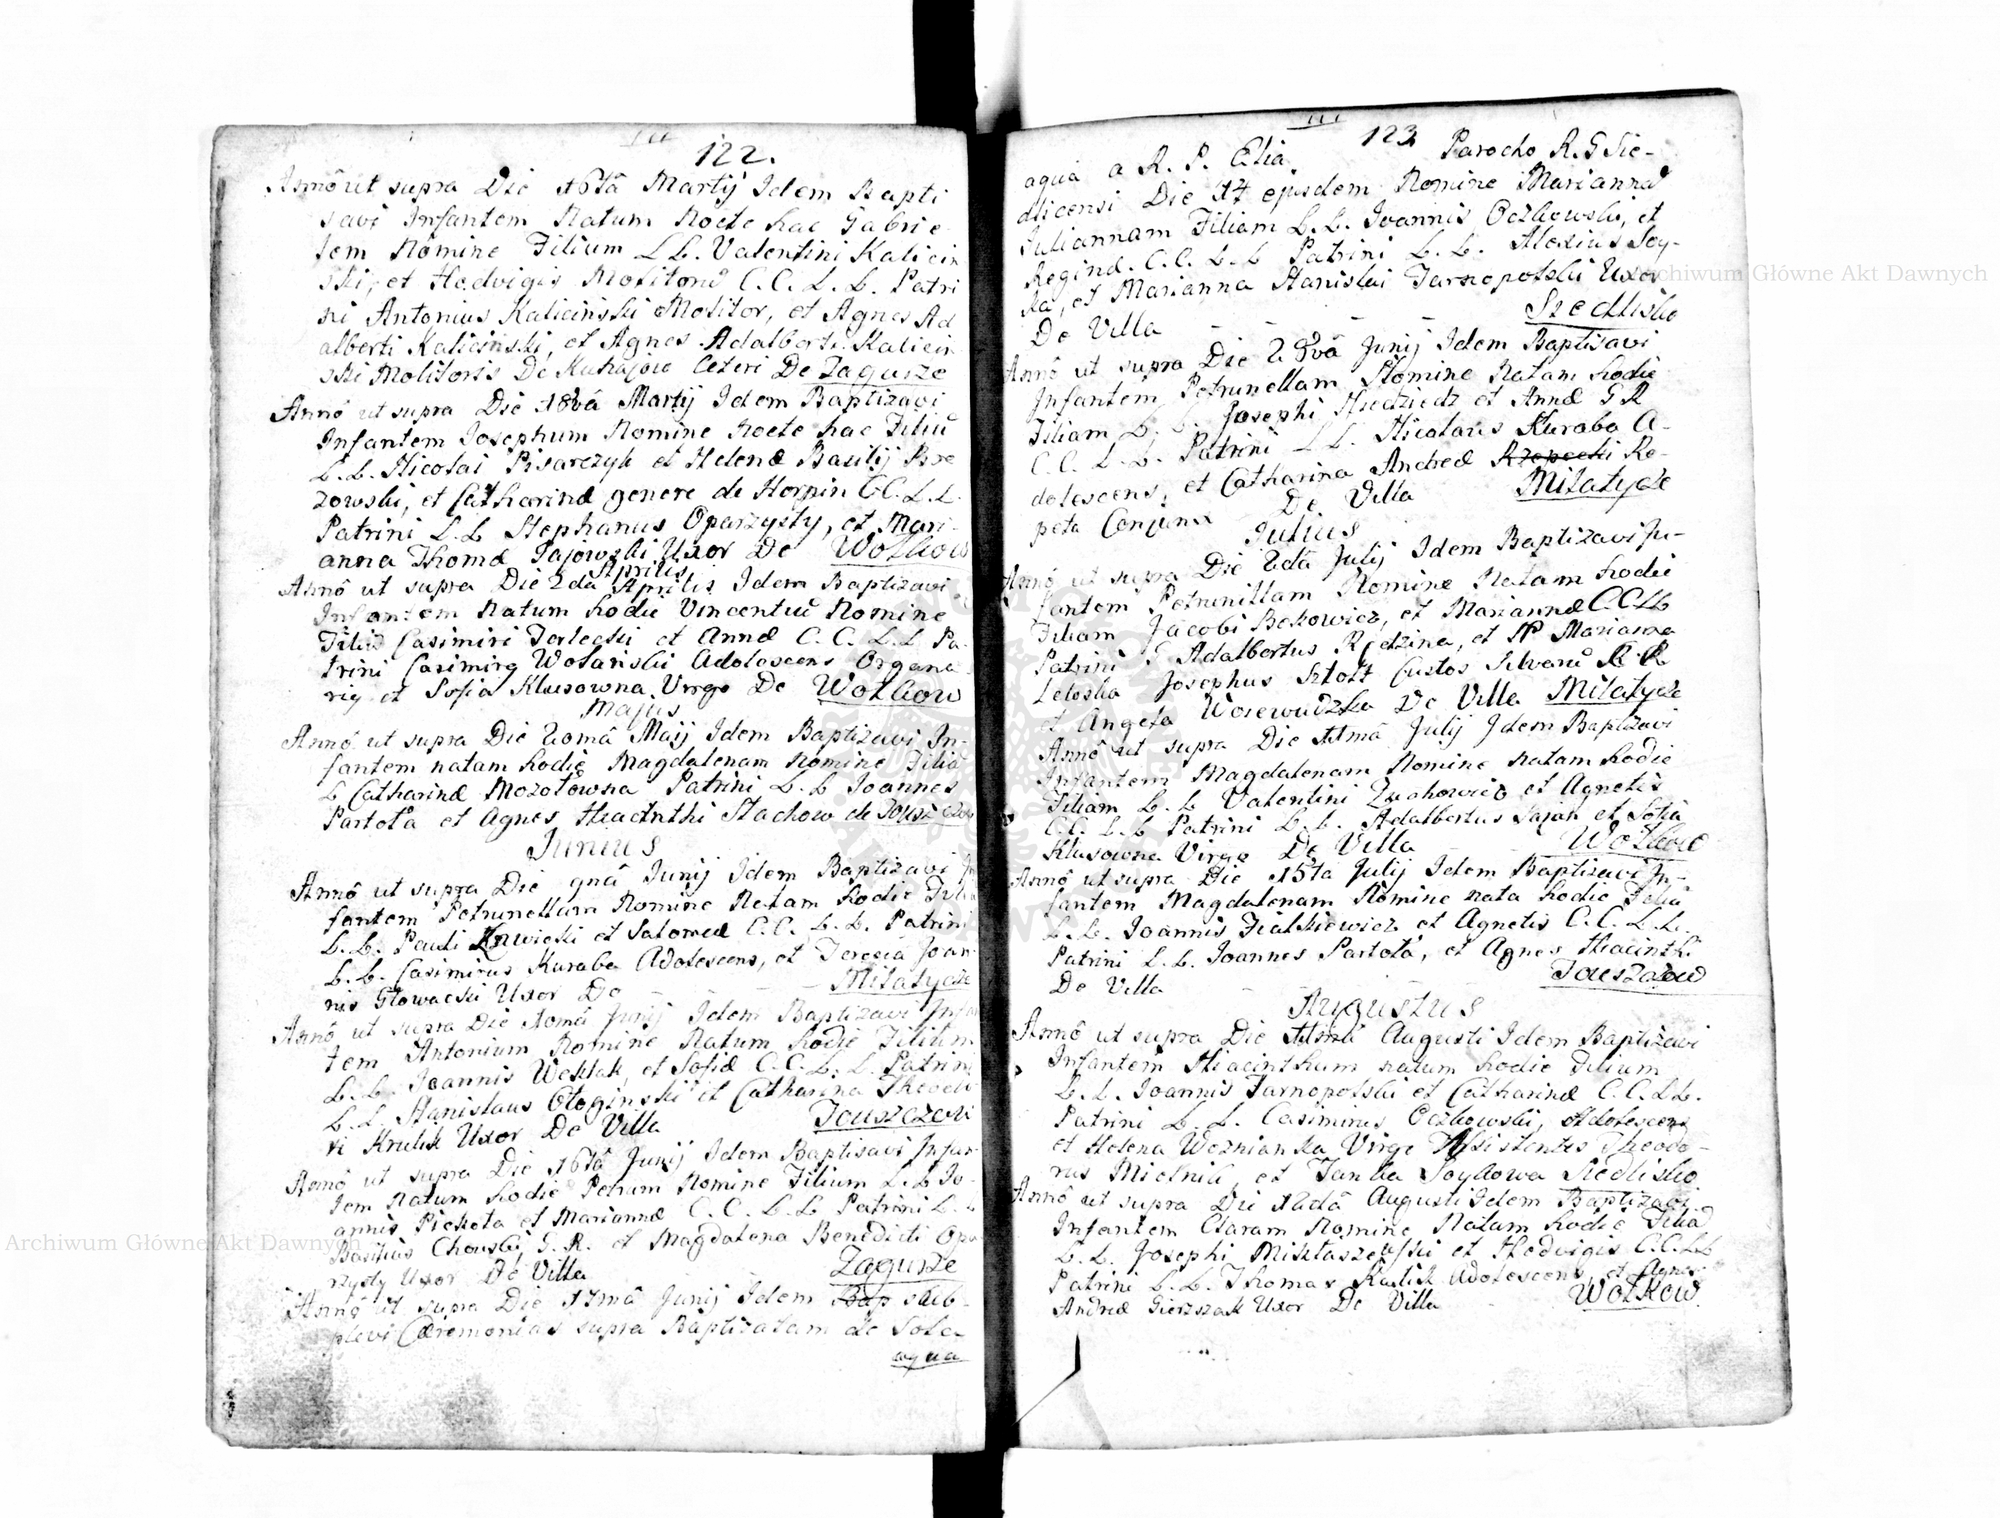 122.
Annô ut supra Die 16tâ Martij Idem Bapti
savi Infantem Natum Nocte hac Gabrie-
lem Nomine Filium L.L. Valentini Kalicin
ski, et Hedvigis Molitorũ C.C. L.L. Patri
ni Antonius Kaliciński Molitor, et Agnes Ad
alberti Kaliciński, et Agnes Adalberti Kalicin
ski Molitoris De Kuhajow Ceteri De Zagurze
Annô ut supra Die 18vâ Martij Idem Baptizavi
Infantem Josephum Nomine Nocte hac Filiũ
L.L. Nicolai Pisarczyk et Helenæ Basilij
zowski, et Catharinæ genere de Horpin C.C. L.L.
Patrini L.L. Stephanus Oparzysty, et Mari-
anna Thomæ Pajowski Uxor De Wołkow
Aprilis
Annô ut supra Die 2dâ Aprilis Idem Baptizavi
Infantem Natum hodie Vincentiũ Nomine
Filiũ Casimiri Terlecki et Annæ C.C. L.L. Pa-
trini Casimirg Wolański Adolescens Organa
rig et Sofia Klusowna Virgo De Wołkow
Majus
Annô ut supra Die Maij Idem Baptizavi In-
fantem natam hodie Magdalenam Nomine Filiã
L. Catharinæ Mozołowna Patrini L.L. Joannes
Partoła et Agnes Hiacinthi Stachow de
Junius
Annô ut supra Die 9nâ Junij Idem Baptizavi In
fantem Petrunellam Nomine Natam hodie Filia
L.L. Pauli et Salomeæ C.C. L.L. Patrini
L.L. Casimirus Kuraba Adolescens, et Teresia Joan
nis Głowacki Uxor De - - - Miłatycze
Annô ut supra Die Junij Idem Baptizavi Infan
tem Antonium Nomine Natum hodie Filium
L.L. Joannis Weklak, et Sofiæ C.C. L.L. Patrini
L.L. Stanislaus et Catharina Theodo
ri Krulik Uxor De Villa Touszczow
Annô ut supra Die 16tâ Junij Idem Baptisavi Infan
tem Natum hodie Petrum Nomine Filium L.L. Jo-
annis Piekota et Mariannæ C.C. L.L. Patrini L.L.
Basilius G.R. et Magdalena Benedicti Opa
rzysty Uxor De Villa Zagurze
Annô ut supra Die 17mâ Junij Idem Bap sub-
plevi Cæremonias supra Baptizatam de Sola
aqua
123
aqua a R. P. Elia Parocho R.G Sie-
dlicensi Die 17 ejusdem Nomine Mariannã
Juliannam Filiam L.L. Joannis Oczkowski, et
Reginæ. C.C. L.L Patrini L.L. Alexius Soy-
ka, et Marianna Stanislai Tarnopolski Uxor
De Villa - - - - Siedlisko
Annô ut supra Die 28vâ Junij Idem Baptisavi
Infantem Petrunellam Nomine Natam hodie
Filiam L.L. Josephi Niedziedz et Annæ G R
C.C. L.L. Patrini L.L. Nicolaus Kuraba A-
dolescens, et Catharina Andreæ Rzepecki Re-
peta Conjunx De Villa Miłatycze
Julius
Annô ut supra Die 2dâ Julij Idem Baptizavi In-
fantem Petrunillam Nomine Natam hodie
Filiam Jacobi Bekowicz, et Mariannæ C.C. L.L
Patrini G Adalbertus Redzina, et Marianna
Leloska Josephus Sztolt Custos Silvarũ R.R.
et Angela Wosewudzka De Villa Miłatycze
Annô ut supra Die Julij Idem Baptizavi
Infantem Magdalenam Nomine natam hodie
Filiam L.L. Valentini et Agnetis
C.C. L.L Patrini L.L. Adalbertus Pajak et Sofia
Klusowna Virgo De Villa Wołkow
Annô ut supra Die 15ta Julij Idem Baptizavi In-
fantem Magdalenam Nomine nata hodie Filiã
L.L. Joannis Fialkiewicz et Agnetis C.C. L.L.
Patrini L.L. Joannes Partoła, et Agnes Hiacinthi
De Villa Touszczow
Augustus
Annô ut supra Die Augusti Idem Baptizavi
Infantem Hiacinthum natum hodie Filium
L.L. Joannis Tarnopolski et Catharinæ C.C. L.L.
Patrini L.L. Casimirus Oczkowski, Adolescens
et Helena Woznianka Virgo Assistentes Theodo-
rus Mielnik, et Tanka Soykowa Siedlisko
Annô ut supra Die Augusti Idem Baptizavi
Infantem Claram Nomine Natam hodie Filiã
L.L. Josephi Mikłaszewski et Hedvigis C.C. L.L
Patrini L.L. Thomas Kulik Adolescens, et Agnes
Andreæ Gierszak Uxor De Villa Wołkow
Archiwum Główne Akt Dawnych
Archiwum Główne Akt Dawnych